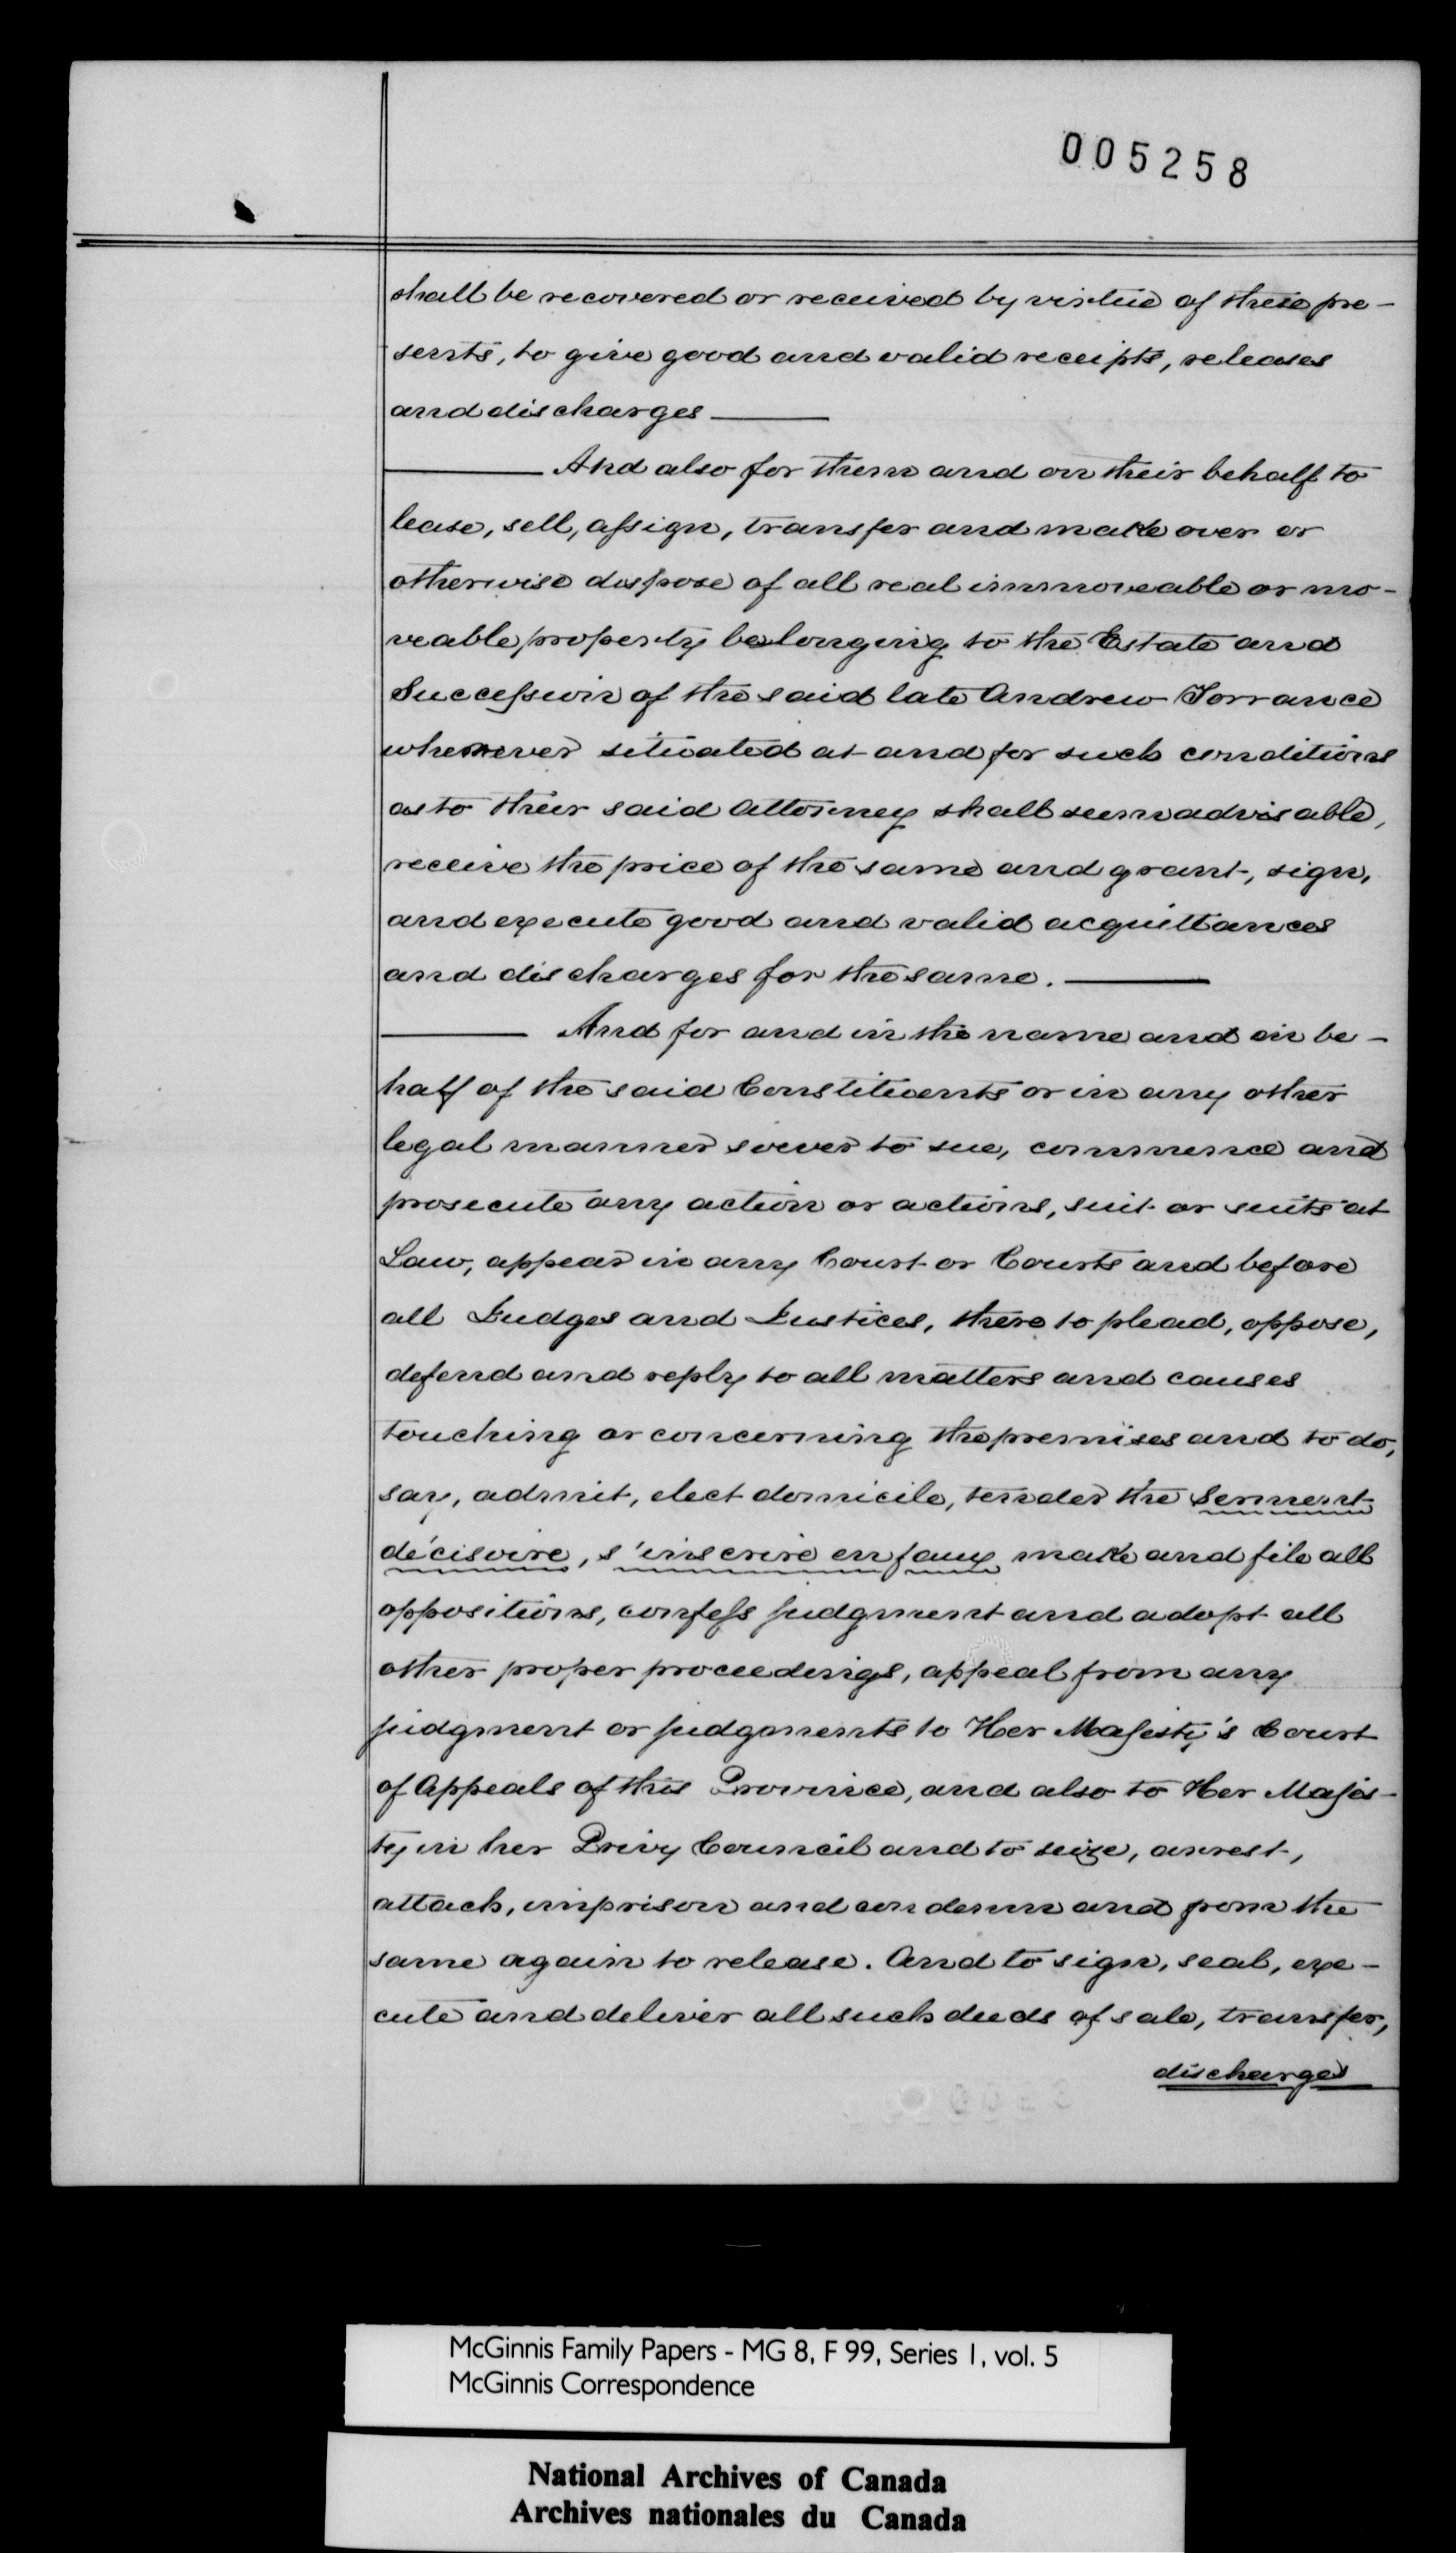 005258
shall be recovered or received by virtue of these pre-
sents, to give good and valid receipts, releases
and discharges ———
——— And also for them and on their behalf to
lease, sell, assign, transfer and make over or
otherwise dispose of all real immoveable or mo-
veable property belonging to the Estate and
Succession of the said late Andrew Torrance
wherever situated at and for such conditions
as to their said Attorney shall seem advisable,
receive the price of the same and grant, sign,
and execute good and valid acquittances
and discharges for the same. ———
——— And for and in the name and on be-
half of the said Constituents or in any other
legal manner soever to sue, commence and
prosecute any action or actions, suit or suits at
Law, appear in any Court or Courts and before
all Judges and Justices, there to plead, oppose,
defend and reply to all matters and causes
touching or concerning the premises and to do,
say, admit, elect domicile, tender the serment
décisoire, s'inscrire en faux make and file all
oppositions, confess judgment and adopt all
other proper proceedings, appeal from any
judgment or judgments to Her Majesty's Court
of Appeals of this Province, and also to Her Majes-
ty in her Privy Council and to seize, arrest,
attach, imprison and condemn and from the
same again to release. And to sign, seal, exe-
cute and deliver all such deeds of sale, transfer,
discharges
McGinnis Family Papers - MG 8, F 99, Series 1, vol. 5
McGinnis Correspondence
National Archives of Canada
Archives nationales du Canada